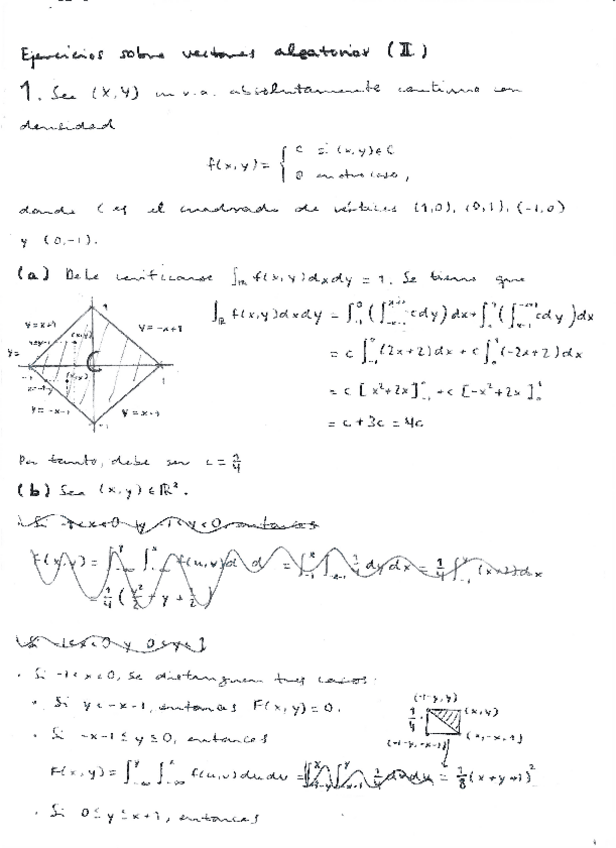 Ejercicios sobre vectores aleatorios (II)
1. Sea (X,Y) un v.a. absolutamente continuo con
densidad
f(x,y) = { c si (x,y) ∈ C
0 en otro caso,
donde C es el cuadrado de vértices (1,0), (0,1), (-1,0)
y (0,-1).
(a) Debe verificarse ∫ℝ f(x,y)dxdy = 1. Se tiene que
y=x+1
y=-x+1
C
y=-x-1
y=x-1
= c ∫ (2x+2)dx + c ∫ (-2x+2)dx
= c [x²+2x] + c [-x²+2x]
= c + 3c = 4c
Por tanto, debe ser c = 1/4
(b) Sea (x,y) ∈ ℝ².
· Si -1<x<0, se distinguen tres casos:
· Si y<-x-1, entonces F(x,y) = 0.
· Si -x-1 ≤ y ≤ 0, entonces
(-1-y, y)
(x,y)
1/4 ·
(x,-x-1)
F(x,y) = ∫ ∫ f(u,v)dudv = 1/8 (x+y+1)²
· Si 0 ≤ y ≤ x+1, entonces